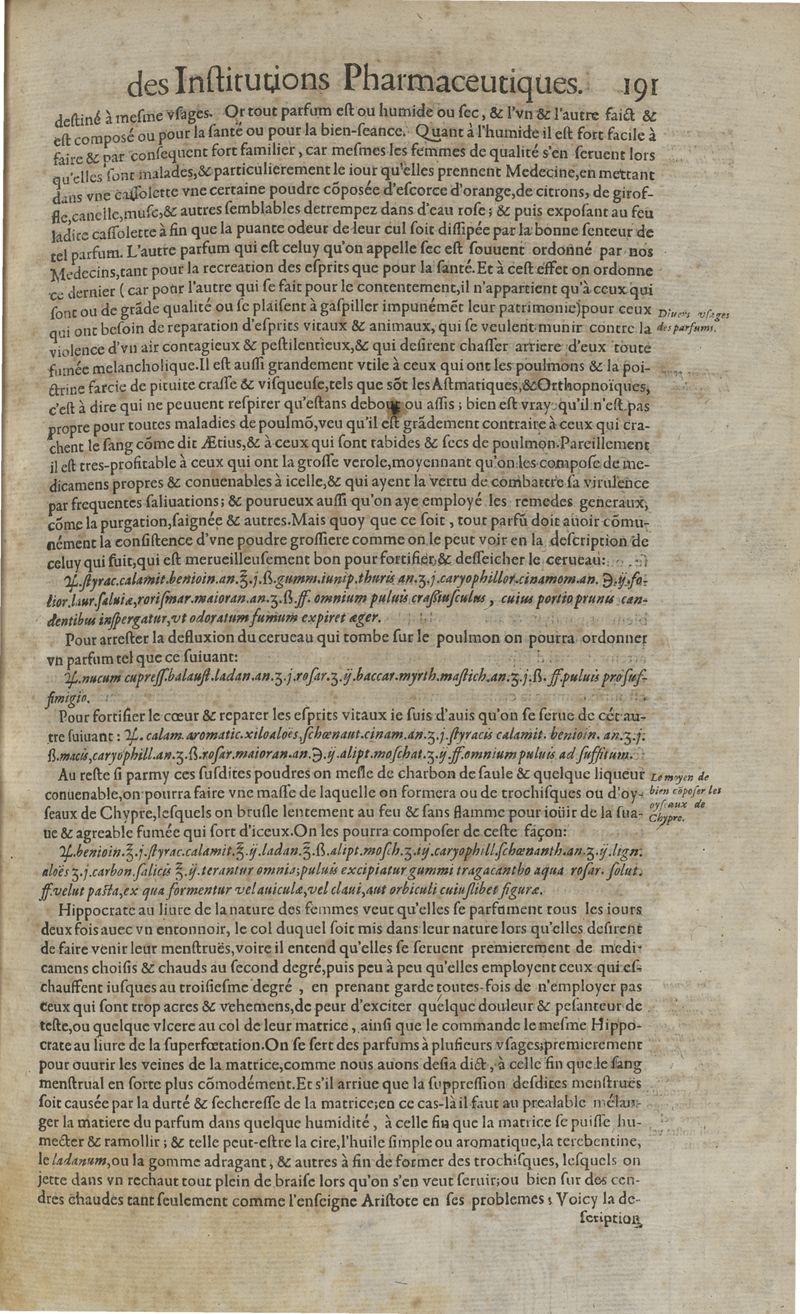 des Inſtitutions Pharmaceutiques. 191
deſtiné à meſme vſages. Or tout parfum eſt ou humide ou ſec, & l'vn & l'autre faict &
eſt composé ou pour la ſanté ou pour la bien-ſeance. Quant à l'humide il eſt fort facile à
faire & par conſequent fort familier, car meſmes les femmes de qualité s'en ſeruent lors
qu'elles ſont malades,& particulierement le iour qu'elles prennent Medecine,en mettant
dans vne caſſolette vne certaine poudre cōpoſée d'eſcorce d'orange,de citrons, de girof-
fle,canelle,muſc,& autres ſemblables detrempez dans d'eau roſe; & puis expoſant au feu
ladite caſſolette à fin que la puante odeur de leur cul ſoit diſſipée par la bonne ſenteur de
tel parfum. L'autre parfum qui eſt celuy qu'on appelle ſec eſt ſouuent ordonné par nos
Medecins,tant pour la recreation des eſprits que pour la ſanté. Et à ceſt effet on ordonne
ce dernier (car pour l'autre qui ſe fait pour le contentement,il n'appartient qu'à ceux qui
ſont ou de grāde qualité ou ſe plaiſent à gaſpiller impunémēt leur patrimonie)pour ceux
Diuers vſages
qui ont beſoin de reparation d'eſprits vitaux & animaux, qui ſe veulent munir contre la
des parfums.
violence d'vn air contagieux & peſtilentieux,& qui deſirent chaſſer arriere d'eux toute
fumée melancholique.Il eſt auſſi grandement vtile à ceux qui ont les poulmons & la poi-
ctrine farcie de pituite craſſe & viſqueuſe,tels que sōt les Aſtmatiques,&Orthopnoïques,
c'eſt à dire qui ne peuuent reſpirer qu'eſtans debout ou aſſis ; bien eſt vray qu'il n'eſt pas
propre pour toutes maladies de poulmō,veu qu'il eſt grādement contraire à ceux qui cra-
chent le ſang cōme dit Ætius,& à ceux qui ſont rabides & ſecs de poulmon.Pareillement
il eſt tres-profitable à ceux qui ont la groſſe verole,moyennant qu'on les compoſe de me-
dicamens propres & conuenables à icelle,& qui ayent la vertu de combattre ſa virulence
par frequentes ſaliuations; & pourueux auſſi qu'on aye employé les remedes generaux,
cōme la purgation,ſaignée & autres.Mais quoy que ce ſoit , tout parfū doit auoir cōmu-
nément la conſiſtence d'vne poudre groſſiere comme on le peut voir en la deſcription de
celuy qui ſuit,qui eſt merueilleuſement bon pour fortifier,& deſſeicher le cerueau:
♃.ſtyrac.calamit.benioin.an.℥.j.ß.gumm.iunip.thuris an.ʒ.j.caryophillor.cinamom.an. ℈.ij.fo-
lior.laur.ſaluiæ,roriſmar.maioran.an.ʒ.ß.ff. omnium puluis craſſiuſculus , cuius portio prunis can-
dentibus inſpergatur,vt odoratum fumum expiret æger.
Pour arreſter la defluxion du cerueau qui tombe ſur le poulmon on pourra ordonner
vn parfum tel que ce ſuiuant:
♃.nucum cupreſſ.balauſt.ladan.an.ʒ.j.roſar.ʒ.ij.baccar.myrth.maſtich.an.ʒ.j.ß. ff.puluis pro ſuf-
fimigio.
Pour fortifier le cœur & reparer les eſprits vitaux ie ſuis d'auis qu'on ſe ſerue de cét au-
tre ſuiuant : ♃. calam.aromatic.xiloaloës,ſchœnaut.cinam.an.ʒ.j.ſtyracis calamit. benioin. an.ʒ.j.
ß.macis,caryophill.an.ʒ.ß.roſar.maioran.an.℈.ij.alipt.moſchat.ʒ.ij.ff.omnium puluis ad ſuffitum.
Au reſte ſi parmy ces ſuſdites poudres on meſle de charbon de ſaule & quelque liqueur
Le moyen de
conuenable,on pourra faire vne maſſe de laquelle on formera ou de trochiſques ou d'oy-
bien cōpoſer les
ſeaux de Chypre,leſquels on bruſle lentement au feu & ſans flamme pour ioüir de la ſua-
oyſeaux de
Chypre.
ue & agreable fumée qui ſort d'iceux.On les pourra compoſer de ceſte façon:
♃.benioin.℥.j.ſtyrac.calamit.℥.ij.ladan.℥.ß.alipt.moſch.ʒ.iij.caryophill.ſchœnanth.an.ʒ.ij.lign.
aloës ʒ.j.carbon.ſalicis ℥.ij.terantur omnia;puluis excipiatur gummi tragacantho aqua roſar. ſolut.
ff.velut paſta,ex qua formentur vel auiculæ,vel claui,aut orbiculi cuiuſlibet figuræ.
Hippocrate au liure de la nature des femmes veut qu'elles ſe parfument tous les iours
deux fois auec vn entonnoir, le col duquel ſoit mis dans leur nature lors qu'elles deſirent
de faire venir leur menſtruës,voire il entend qu'elles ſe ſeruent premierement de medi-
camens choiſis & chauds au ſecond degré,puis peu à peu qu'elles employent ceux qui eſ-
chauffent iuſques au troiſieſme degré , en prenant garde toutes-fois de n'employer pas
ceux qui ſont trop acres & vehemens,de peur d'exciter quelque douleur & peſanteur de
teſte,ou quelque vlcere au col de leur matrice , ainſi que le commande le meſme Hippo-
crate au liure de la ſuperfœtation.On ſe ſert des parfums à pluſieurs vſages;premierement
pour ouurir les veines de la matrice,comme nous auons deſia dict , à celle fin que le ſang
menſtrual en ſorte plus cōmodément.Et s'il arriue que la ſuppreſſion deſdites menſtruës
ſoit causée par la durté & ſechereſſe de la matrice;en ce cas-là il faut au prealable mélan-
ger la matiere du parfum dans quelque humidité , à celle fin que la matrice ſe puiſſe hu-
mecter & ramollir ; & telle peut-eſtre la cire,l'huile ſimple ou aromatique,la terebentine,
le ladanum,ou la gomme adragant , & autres à fin de former des trochiſques, leſquels on
jette dans vn rechaut tout plein de braiſe lors qu'on s'en veut ſeruir;ou bien ſur des cen-
dres chaudes tant ſeulement comme l'enſeigne Ariſtote en ſes problemes ; Voicy la de-
ſcription